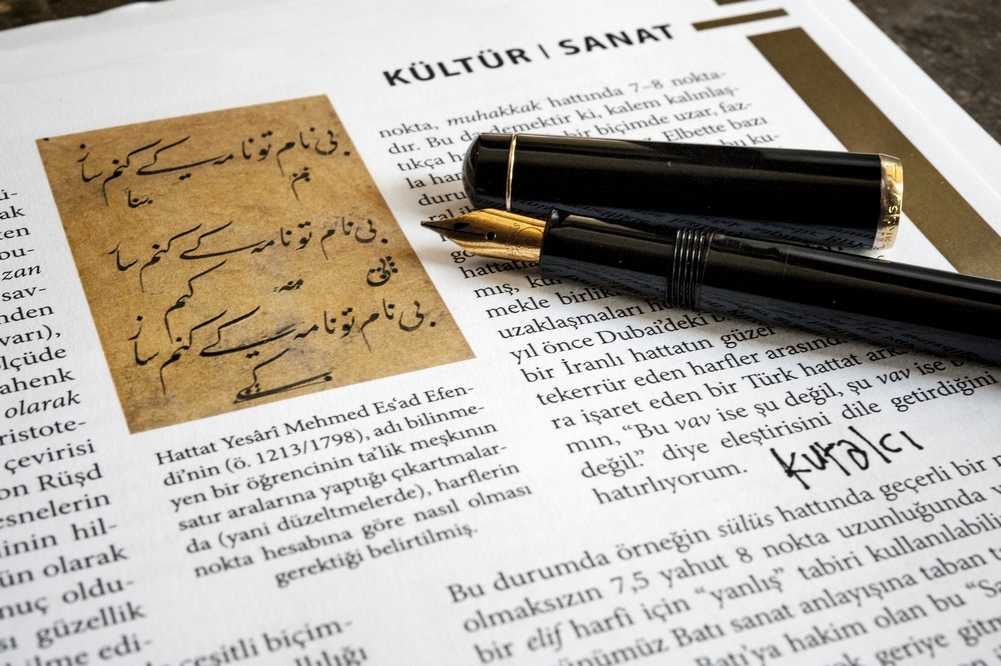 KÜLTÜR | SANAT
ü-
ak
ten
bu-
zan
sav-
nden
varı),
lçüde
ahenk
olarak
ristote-
çevirisi
on Rüşd
esnelerin
inin hil-
ün olarak
nuç oldu-
sı güzellik
ilme edi-
çeşitli biçim-
بی نام تو نامه کی کنم ساز
بی نام تو نامه کی کنم ساز
بی نام تو نامه کی کنم ساز
Hattat Yesârî Mehmed Es'ad Efen-
di'nin (ö. 1213/1798), adı bilinme-
yen bir öğrencinin ta'lik meşkının
satır aralarına yaptığı çıkartmalar-
da (yani düzeltmelerde), harflerin
nokta hesabına göre nasıl olması
gerektiği belirtilmiş.
nokta, muhakkak hattında 7–8 nokta-
dır. Bu demektir ki, kalem kalınlaş-
tıkça bir biçimde uzar, faz-
la Elbette bazı
bu ku-
mış,
mekle birlik
uzaklaşmaları
yıl önce Dubai'deki
bir İranlı hattatın güzel
tekerrür eden harfler arasında
ra işaret eden bir Türk hattat
mın, “Bu vav ise şu değil, şu vav ise
değil.” diye eleştirisini dile getirdiğini
hatırlıyorum.
kutalcı
Bu durumda örneğin sülüs hattında geçerli bir
olmaksızın 7,5 yahut 8 nokta uzunluğunda
bir elif harfi için “yanlış” tabiri kullanılabilir
günümüz Batı sanat anlayışına taban
Batı'ya hakim olan bu
geriye